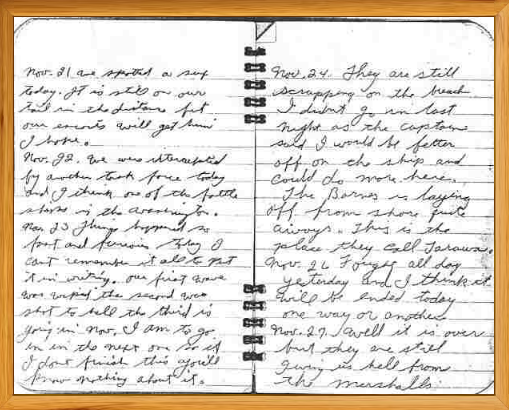 Nov. 21 we spotted a sub
today. It is still on our
tail in the distance but
our escorts will get him
I hope.
Nov. 22. We were intercepted
by another task force today
and I think one of the battle
ships is the Washington.
Nov 23 Things happened so
fast and furious today I
cant remember it all to put
it in writing. our first wave
was wiped the second was
shot to hell the third is
going in now, I am to go
in in the next one so if
I dont finish this you'll
know nothing about it.
Nov. 24. They are still
scrapping on the beach
I didnt go in last
night as the captain
said I would be better
off on the ship and
could do more here.
The Barnes is laying
off from shore quite
aways. This is the
place they call Tarawa.
Nov. 26 Forgot all day
yesterday and I think it
will be ended today
one way or another.
Nov. 27. Well it is over
but they are still
giving us hell from
the Marshalls.